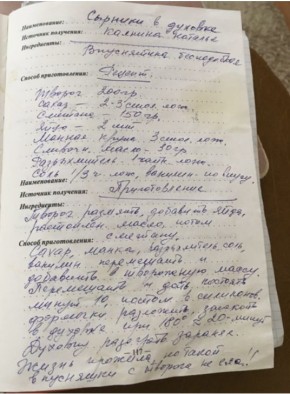 Наименование: Сырники в духовке
Источник получения: Калинина Наталья
Ингредиенты: Вкуснятина
Способ приготовления: Рецепт.
Творог 200гр.
Сахар – 2-3 стол. лож.
Сметана – 150 гр.
Яйцо – 2 шт
Манная крупа 3 стол. лож.
Сливочн. масло. 30 гр
Разрыхлитель. 1 чайн. лож.
Соль 1/3 ч. лож, ванилин по вкусу.
Наименование:
Источник получения: Приготовление
Ингредиенты:
Творог размять, добавить яйца,
растоплен. масло, потом
Способ приготовления: сметану,
Сахар, манка, разрыхлитель соль
ванилин перемешать и
добавить в творожную массу.
Перемешать и дать постоять
минут 10, потом в силиконов.
формочки разложить, запекать
в духовке при 180° 20 минут
Духовку разогреть заранее.
Жизнь прожила, но такой
вкуснятины с творога не ела..!